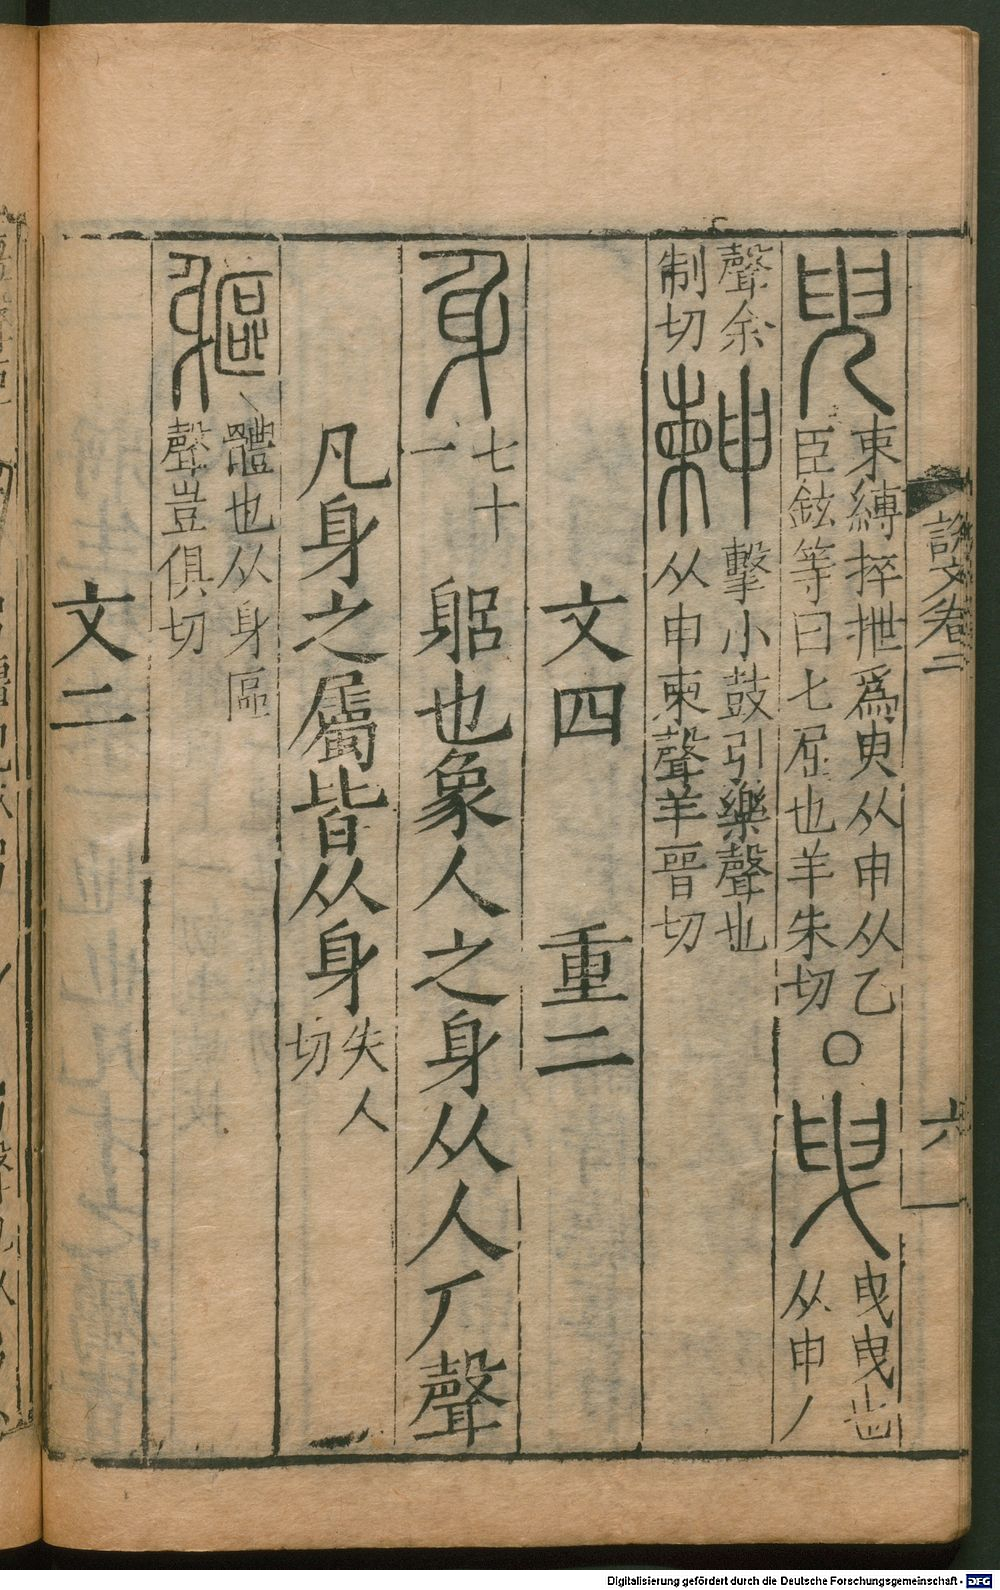 說文卷二
六一
臾束縛捽抴爲臾从申从乙
臣鉉等曰乙屈也羊朱切
○
曳曳曳也
从申丿
聲余
制切
𣌾擊小鼓引樂聲也
从申柬聲羊晉切
文四 重二
身七十
一
躳也象人之身从人厂聲
凡身之屬皆从身失人
切
軀體也从身區
聲豈俱切
文二
Digitalisierung gefördert durch die Deutsche Forschungsgemeinschaft - DFG